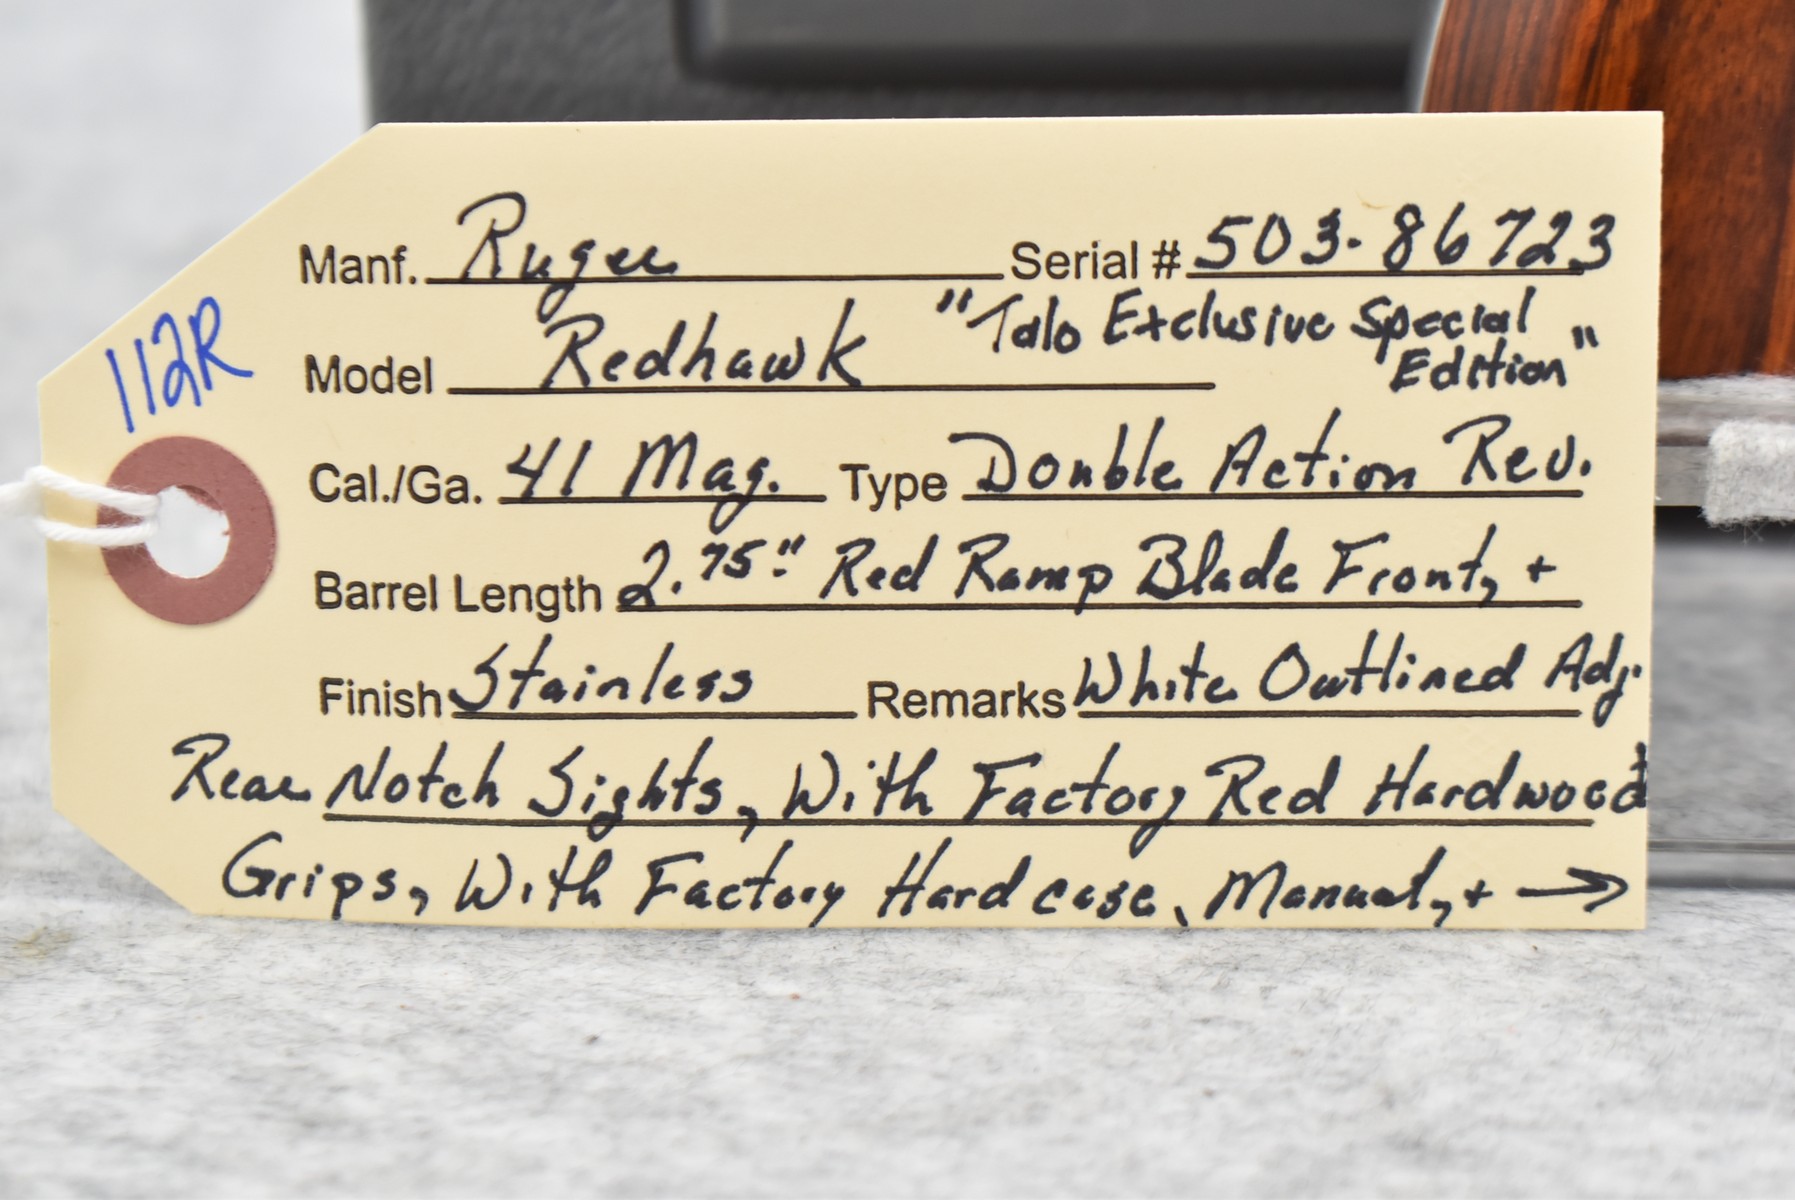 112R
Manf. Ruger Serial # 503-86723
Model Redhawk "Talo Exclusive Special
Edition"
Cal./Ga. 41 Mag. Type Double Action Rev.
Barrel Length 2.75" Red Ramp Blade Front, +
Finish Stainless Remarks White Outlined Adj.
Rear Notch Sights, With Factory Red Hardwood
Grips, With Factory Hard case, Manual, + →